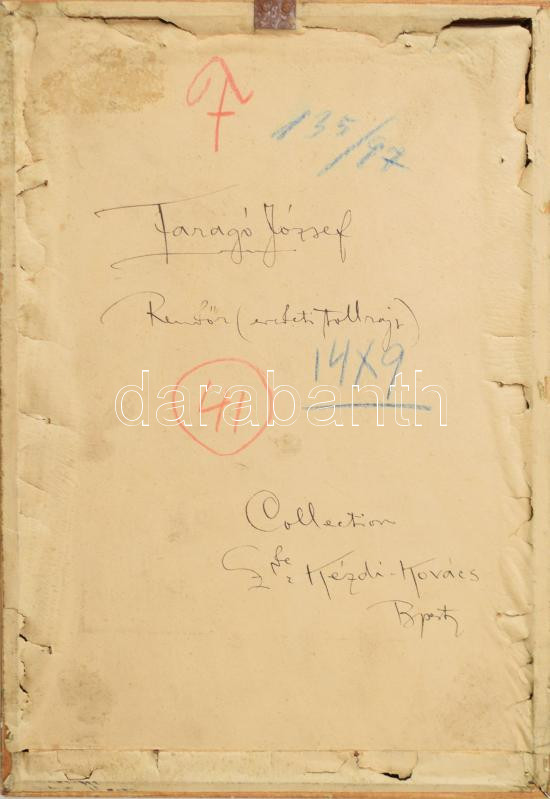 135/97
Faragó József
Rendőr (eredeti tollrajz)
14X9
darabanth
41
Collection
Kézdi-Kovács
Bpest